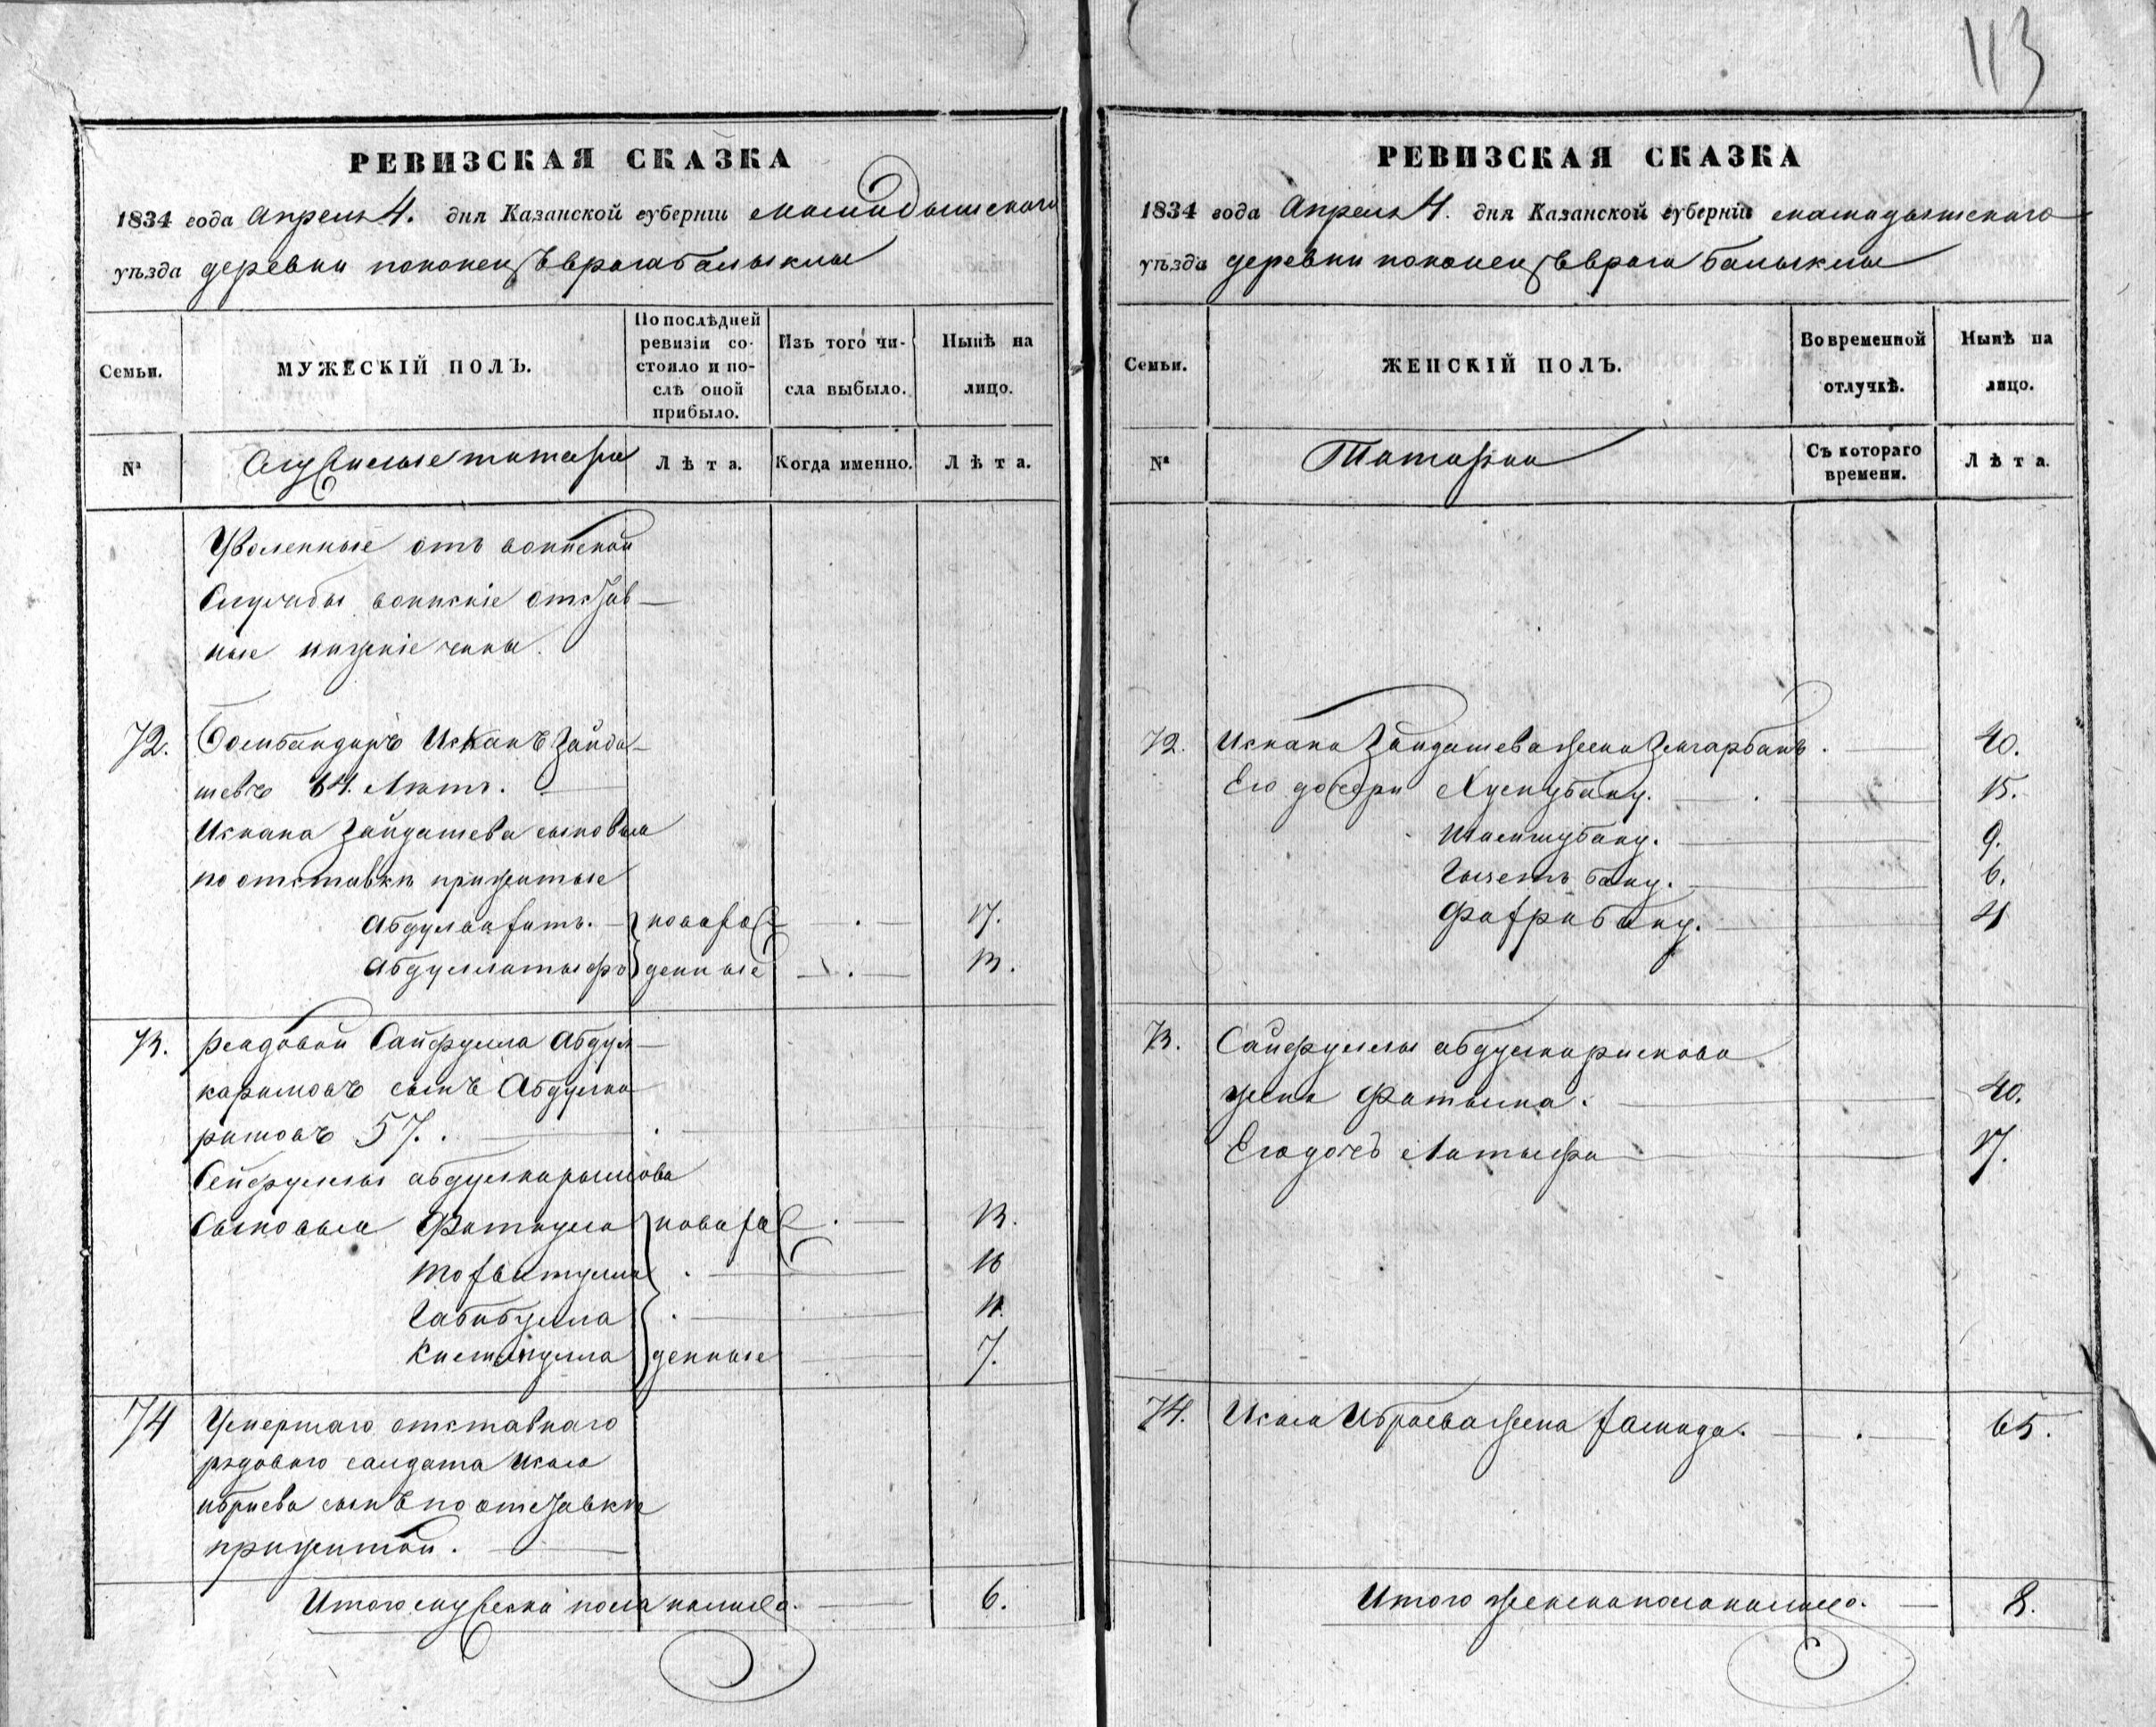 113
РЕВИЗСКАЯ СКАЗКА
1834 года Апреля 4. дня Казанской губерніи мамадышскаго
уѣзда деревни поконец врага балыклы
Семьи.
МУЖЕСКІЙ ПОЛЪ.
По послѣдней ревизіи со-
стояло и по-
слѣ оной
прибыло.
Изъ того чи-
сла выбыло.
Нынѣ на
лицо.
№
Служилые татара
Лѣта.
Когда именно.
Лѣта.
Уволенные отъ воинской
Службы воинскіе отстав-
ные нижніе чины.
72. Бомбандиръ Исканъ Зайда-
шевъ 64. Лѣтъ.
Искана Зайдашева сыновья
по отставкѣ прижитые
17.
Абдуллатыфъ денные 13.
73. рядовой Сайфулла Абдул-
каримовъ сынъ Абдулка
римовъ 57.
Сейфуллы абдулкарымова
Сыновья
13.
16
Габибулла 11.
денные 7.
74 Умершаго отставнаго
рядоваго салдата
сынъ по отставке
прижитой.
Итого мужеска пола налицо. 6.
РЕВИЗСКАЯ СКАЗКА
1834 года Апреля 4. дня Казанской губерніи мамадышскаго
уѣзда деревни поконец врага балыклы
Семьи.
ЖЕНСКІЙ ПОЛЪ.
Во временной
отлучкѣ.
Нынѣ на
лицо.
№
Татарки
Съ котораго
времени.
Лѣта.
72. Искана Зайдашева жена 40.
Его дочери Хуснубану. 15.
9.
бану. 6.
4
73. Сайфуллы абдулкаримова
жена Фатыма. 40.
Его дочь Латыфа 17.
74. жена Хамида. 65.
Итого женска пола налицо. 8.